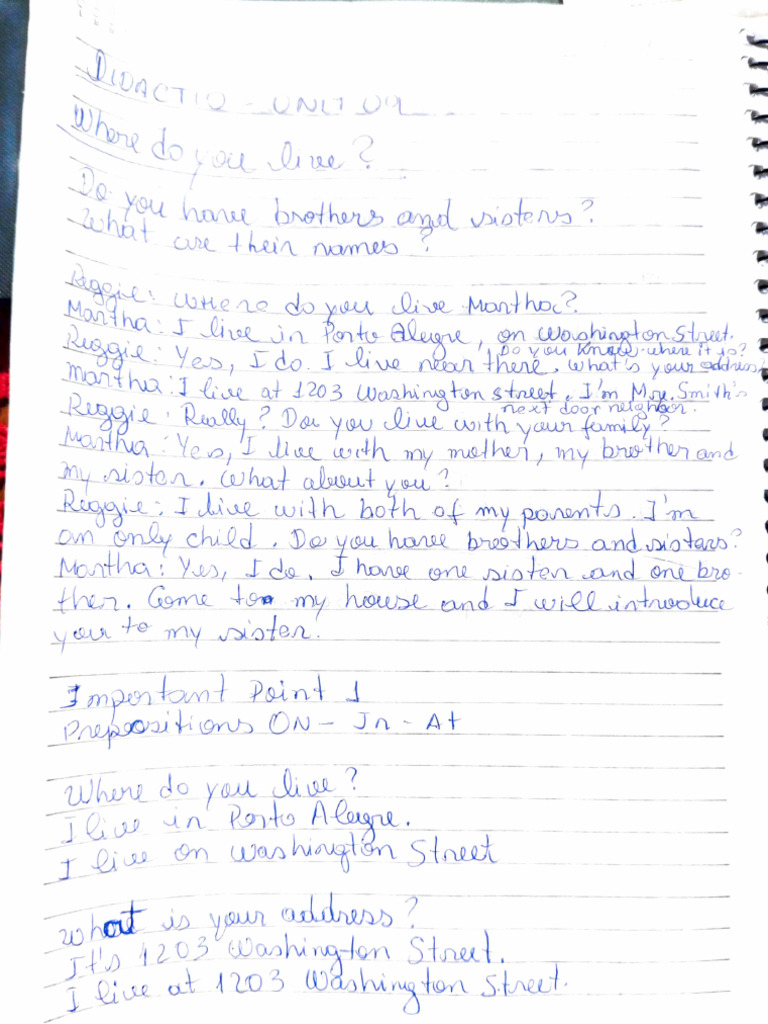 DIDACTIC - UNIT 09
Where do you live?
Do you have brothers and sisters?
What are their names?
Reggie: Where do you live Martha?
Martha: I live in Porto Alegre, on Washington Street.
Do you know where it is?
Reggie: Yes, I do. I live near there. What's your address?
Martha: I live at 1203 Washington street. I'm Mrs. Smith's
next door neighbor.
Reggie: Really? Do you live with your family?
Martha: Yes, I live with my mother, my brother and
my sister. What about you?
Reggie: I live with both of my parents. I'm
an only child. Do you have brothers and sisters?
Martha: Yes, I do. I have one sister and one bro-
ther. Come to my house and I will introduce
you to my sister.
Important Point 1
Prepositions ON - In - At
Where do you live?
I live in Porto Alegre.
I live on Washington Street
What is your address?
It's 1203 Washington Street.
I live at 1203 Washington Street.